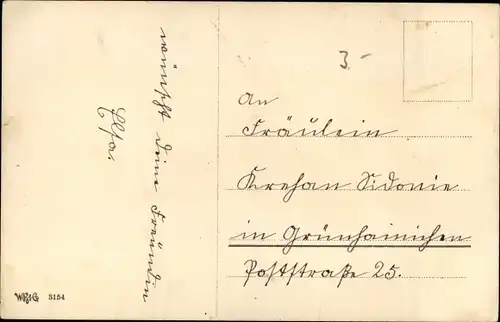 wünscht Deine Freundin
Elsa.
3-
An
Fräulein
Krehan Sidonie
in Grünhainichen
Poststraße 25.
WR&G 3154